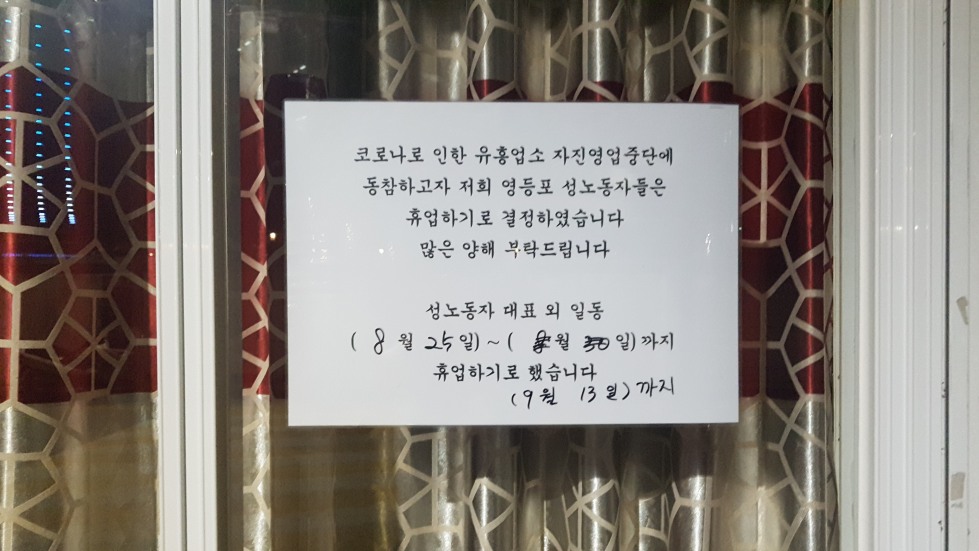 코로나로 인한 유흥업소 자진영업중단에
동참하고자 저희 영등포 성노동자들은
휴업하기로 결정하였습니다
많은 양해 부탁드립니다
성노동자 대표 외 일동
( 8 월 25일) ~ ( 월 일) 까지
휴업하기로 했습니다
(9월 13일) 까지